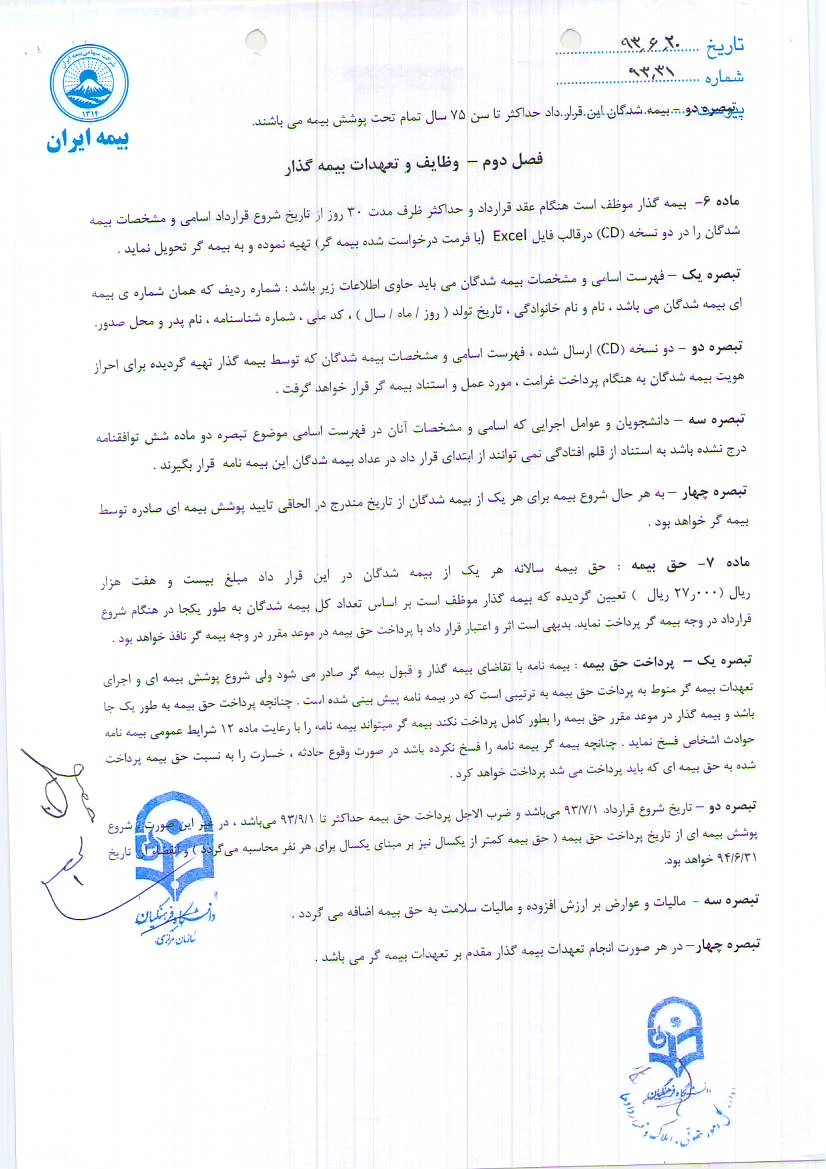 تاریخ ۹۳٫۶٫۲۰
شماره ۹۳٫۳۱
پیوست
شرکت سهامی بیمه ایران
۱۳۱۴
بیمه ایران
تبصره دو – بیمه شدگان این قرار داد حداکثر تا سن ۷۵ سال تمام تحت پوشش بیمه می باشند.
فصل دوم – وظایف و تعهدات بیمه گذار
ماده ۶- بیمه گذار موظف است هنگام عقد قرارداد و حداکثر ظرف مدت ۳۰ روز از تاریخ شروع قرارداد اسامی و مشخصات بیمه
شدگان را در دو نسخه (CD) درقالب فایل Excel (با فرمت درخواست شده بیمه گر) تهیه نموده و به بیمه گر تحویل نماید .
تبصره یک – فهرست اسامی و مشخصات بیمه شدگان می باید حاوی اطلاعات زیر باشد : شماره ردیف که همان شماره ی بیمه
ای بیمه شدگان می باشد ، نام و نام خانوادگی ، تاریخ تولد ( روز / ماه / سال ) ، کد ملی ، شماره شناسنامه ، نام پدر و محل صدور.
تبصره دو – دو نسخه (CD) ارسال شده ، فهرست اسامی و مشخصات بیمه شدگان که توسط بیمه گذار تهیه گردیده برای احراز
هویت بیمه شدگان به هنگام پرداخت غرامت ، مورد عمل و استناد بیمه گر قرار خواهد گرفت .
تبصره سه – دانشجویان و عوامل اجرایی که اسامی و مشخصات آنان در فهرست اسامی موضوع تبصره دو ماده شش توافقنامه
درج نشده باشد به استناد از قلم افتادگی نمی توانند از ابتدای قرار داد در عداد بیمه شدگان این بیمه نامه قرار بگیرند .
تبصره چهار – به هر حال شروع بیمه برای هر یک از بیمه شدگان از تاریخ مندرج در الحاقی تایید پوشش بیمه ای صادره توسط
بیمه گر خواهد بود .
ماده ۷- حق بیمه : حق بیمه سالانه هر یک از بیمه شدگان در این قرار داد مبلغ بیست و هفت هزار
ریال (۲۷٫۰۰۰ ریال ) تعیین گردیده که بیمه گذار موظف است بر اساس تعداد کل بیمه شدگان به طور یکجا در هنگام شروع
قرارداد در وجه بیمه گر پرداخت نماید. بدیهی است اثر و اعتبار قرار داد با پرداخت حق بیمه در موعد مقرر در وجه بیمه گر نافذ خواهد بود .
تبصره یک – پرداخت حق بیمه : بیمه نامه با تقاضای بیمه گذار و قبول بیمه گر صادر می شود ولی شروع پوشش بیمه ای و اجرای
تعهدات بیمه گر منوط به پرداخت حق بیمه به ترتیبی است که در بیمه نامه پیش بینی شده است . چنانچه پرداخت حق بیمه به طور یک جا
باشد و بیمه گذار در موعد مقرر حق بیمه را بطور کامل پرداخت نکند بیمه گر میتواند بیمه نامه را با رعایت ماده ۱۲ شرایط عمومی بیمه نامه
حوادث اشخاص فسخ نماید . چنانچه بیمه گر بیمه نامه را فسخ نکرده باشد در صورت وقوع حادثه ، خسارت را به نسبت حق بیمه پرداخت
شده به حق بیمه ای که باید پرداخت می شد پرداخت خواهد کرد .
تبصره دو – تاریخ شروع قرارداد ۹۳/۷/۱ می‌باشد و ضرب الاجل پرداخت حق بیمه حداکثر تا ۹۳/۹/۱ می‌باشد ، در غیر این صورت ، شروع
پوشش بیمه ای از تاریخ پرداخت حق بیمه ( حق بیمه کمتر از یکسال نیز بر مبنای یکسال برای هر نفر محاسبه می‌گردد ) و انقضاء آن تاریخ
۹۴/۶/۳۱ خواهد بود.
تبصره سه – مالیات و عوارض بر ارزش افزوده و مالیات سلامت به حق بیمه اضافه می گردد .
تبصره چهار– در هر صورت انجام تعهدات بیمه گذار مقدم بر تعهدات بیمه گر می باشد .
دانشگاه فرهنگیان
سازمان مرکزی
دانشگاه فرهنگیان